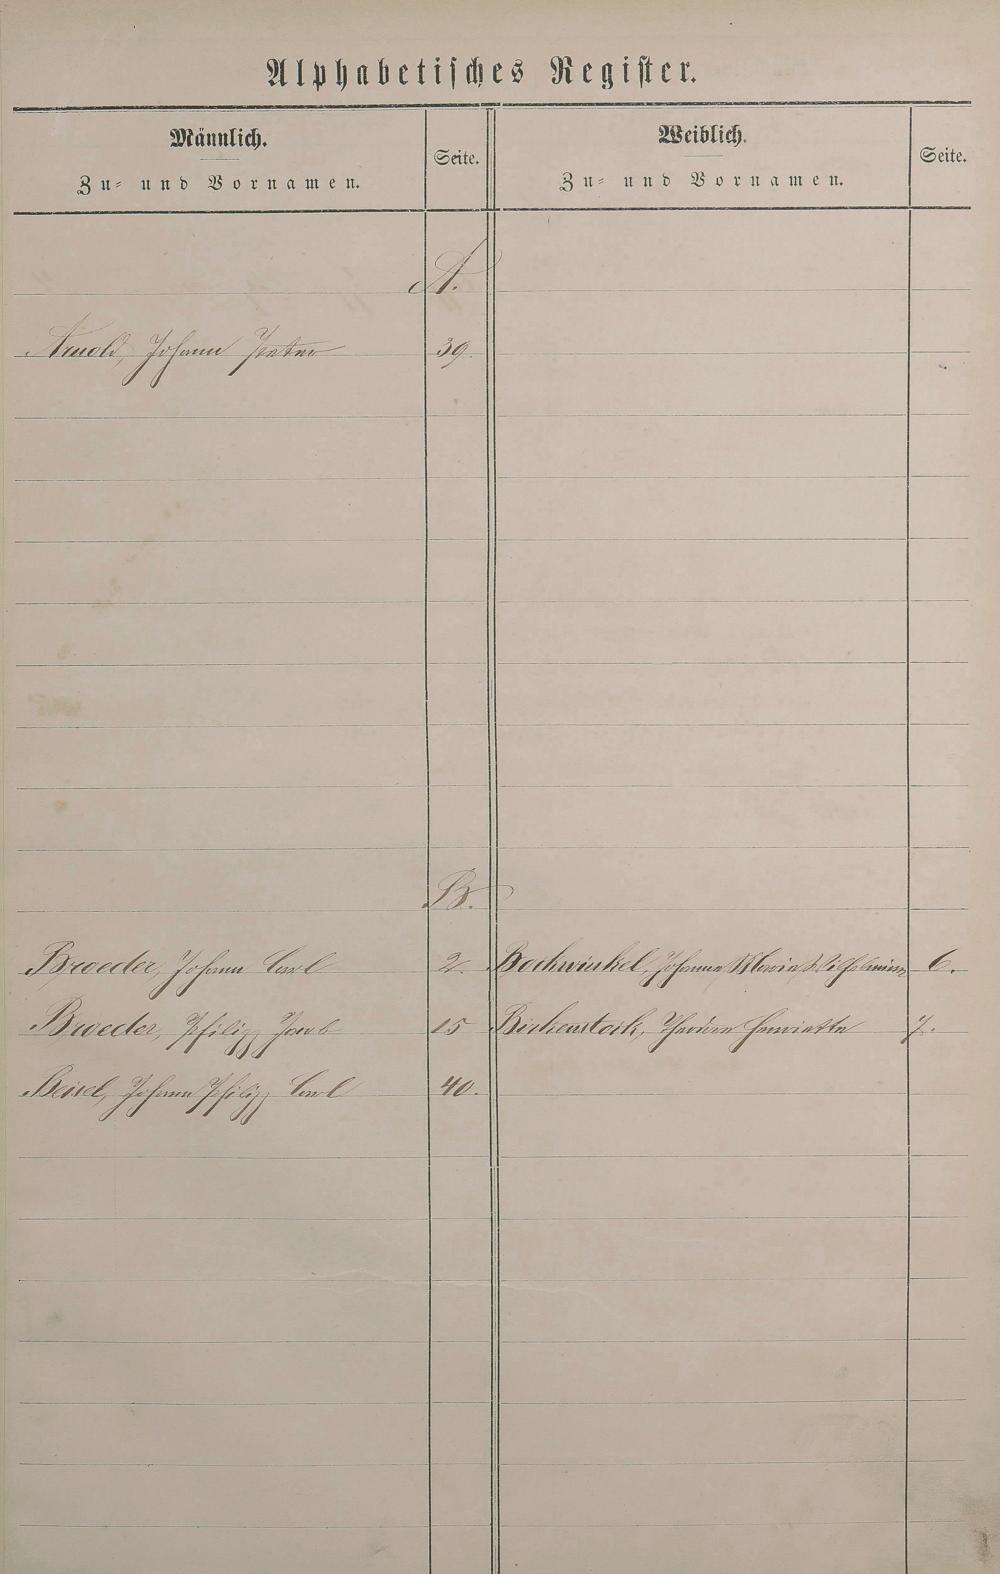 Alphabetisches Register.
Männlich.
Zu- und Vornamen.
Seite.
Weiblich.
Zu- und Vornamen.
Seite.
A.
Arnold, Johann Peter 39.
B.
Broeder, Johann Carl 2. Bockwinkel, Johanna Maria Wilhelmine 6.
Broeder, Philipp Jacob 15 Birkenstock, Theodore Henriette 7.
Beisel, Johann Philipp Carl 40.